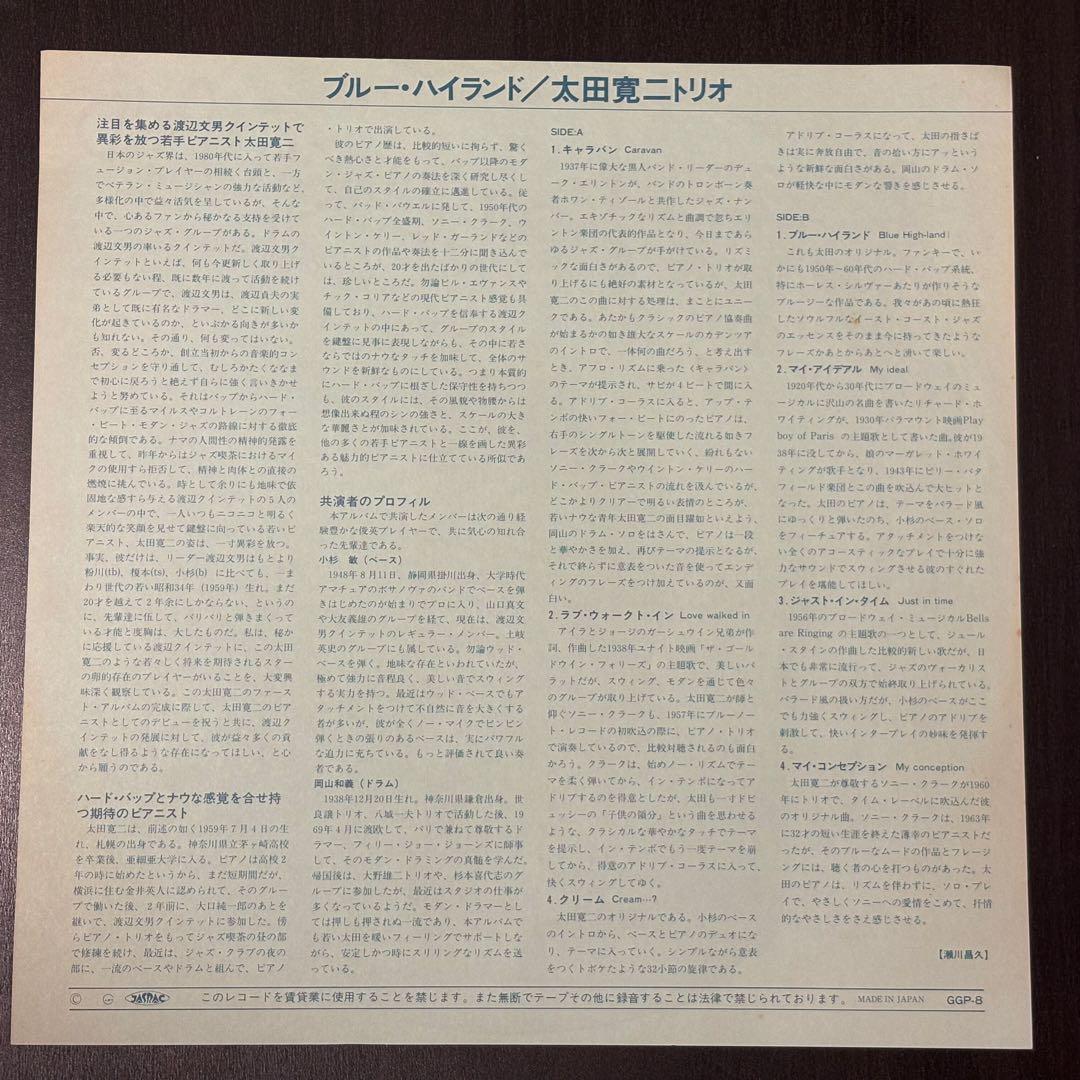 ブルー・ハイランド／太田寛二トリオ
注目を集める渡辺文男クインテットで
異彩を放つ若手ピアニスト太田寛二
日本のジャズ界は、1980年代に入って若手フ
ュージョン・プレイヤーの相続く台頭と、一方
でベテラン・ミュージシャンの強力な活動など、
多様化の中で益々活気を呈しているが、そんな
中で、心あるファンから秘かなる支持を受けて
いる一つのジャズ・グループがある。ドラムの
渡辺文男の率いるクインテットだ。渡辺文男ク
インテットといえば、何も今更新しく取り上げ
る必要もない程、既に数年に渡って活動を続け
ているグループで、渡辺文男は、渡辺貞夫の実
弟として既に有名なドラマー、どこに新しい変
化が起きているのか、といぶかる向きが多いか
も知れない。その通り、何も変ってはいない。
否、変るどころか、創立当初からの音楽的コン
セプションを守り通して、むしろかたくななま
で初心に戻ろうと絶えず自らに強く言いきかせ
ようと努めている。それはバップからハード・
バップに至るマイルスやコルトレーンのフォー・
ビート・モダン・ジャズの路線に対する徹底
的な傾倒である。ナマの人間性の精神的発露を
重視して、昨年からはジャズ喫茶におけるマイ
クの使用すら拒否して、精神と肉体との直接の
燃焼に挑んでいる。時として余りにも地味で依
固地な感すら与える渡辺クインテットの5人の
メンバーの中で、一人いつもニコニコと明るく
楽天的な笑顔を見せて鍵盤に向っている若いピ
アニスト、太田寛二の姿は、一寸異彩を放つ。
事実、彼だけは、リーダー渡辺文男はもとより
粉川(tb)、榎本(ts)、小杉(b) に比べても、一ま
わり世代の若い昭和34年（1959年）生れ。まだ
20才を越えて2年余にしかならない、というの
に、先輩達に伍して、バリバリと弾きまくって
いる才能と度胸は、大したものだ。私は、秘か
に応援している渡辺クインテットに、この太田
寛二のような若々しく将来を期待されるスター
の卵的存在のプレイヤーがいることを、大変興
味深く観察している。この太田寛二のファース
ト・アルバムの完成に際して、太田寛二のピア
ニストとしてのデビューを祝うと共に、渡辺ク
インテットの発展に対して、彼が益々多くの貢
献をなし得るような存在になってほしい、と心
から願うのである。
ハード・バップとナウな感覚を合せ持
つ期待のピアニスト
太田寛二は、前述の如く1959年7月4日の生
れ、札幌の出身である。神奈川県立茅ヶ崎高校
を卒業後、亜細亜大学に入る。ピアノは高校2
年の時に始めたというから、まだ短期間だが、
横浜に住む金井英人に認められて、そのグルー
プで働いた後、2年前に、大口純一郎のあとを
継いで、渡辺文男クインテットに参加した。傍
らピアノ・トリオをもってジャズ喫茶の昼の部
で修練を続け、最近は、ジャズ・クラブの夜の
部に、一流のベースやドラムと組んで、ピアノ
・トリオで出演している。
彼のピアノ歴は、比較的短いに拘らず、驚く
べき熱心さと才能をもって、バップ以降のモダ
ン・ジャズ・ピアノの奏法を深く研究し尽くし
て、自己のスタイルの確立に邁進している。従
って、バッド・パウエルに発して、1950年代の
ハード・バップ全盛期、ソニー・クラーク、ウ
イントン・ケリー、レッド・ガーランドなどの
ピアニストの作品や奏法を十二分に聞き込んで
いるところが、20才を出たばかりの世代にして
は、珍しいところだ。勿論ビル・エヴァンスや
チック・コリアなどの現代ピアニスト感覚も具
備しており、ハード・バップを信奉する渡辺ク
インテットの中にあって、グループのスタイル
を鍵盤に見事に表現しながらも、その中に若さ
ならではのナウなタッチを加味して、全体のサ
ウンドを新鮮なものにしている。つまり本質的
にハード・バップに根ざした保守性を持ちつつ
も、彼のスタイルには、その風貌や物腰からは
想像出来ぬ程のシンの強さと、スケールの大き
な華麗さとが加味されている。ここが、彼を、
他の多くの若手ピアニストと一線を画した異彩
ある魅力的ピアニストに仕立てている所似であ
ろう。
共演者のプロフィル
本アルバムで共演したメンバーは次の通り経
験豊かな俊英プレイヤーで、共に気心の知れ合
った先輩達である。
小杉　敏（ベース）
1948年8月11日、静岡県掛川出身、大学時代
アマチュアのボサノヴァのバンドでベースを弾
きはじめたのが始まりでプロに入り、山口真文
や大友義雄のグループを経て、現在は、渡辺文
男クインテットのレギュラー・メンバー。土岐
英史のグループにも属している。勿論ウッド・
ベースを弾く。地味な存在といわれていたが、
極めて強力に音程良く、美しい音でスウィング
する実力を持つ。最近はウッド・ベースでもア
タッチメントをつけて不自然に音を大きくする
者が多いが、彼が全くノー・マイクでビンビン
弾くときの張りのあるベースは、実にパワフル
な迫力に充ちている。もっと評価されて良い奏
者である。
岡山和義（ドラム）
1938年12月20日生れ。神奈川県鎌倉出身。世
良譲トリオ、八城一夫トリオで活動した後、19
69年4月に渡欧して、パリで兼ねて尊敬するド
ラマー、フィリー・ジョー・ジョーンズに師事
して、そのモダン・ドラミングの真髄を学んだ。
帰国後は、大野雄二トリオや、杉本喜代志のグ
ループに参加したが、最近はスタジオの仕事が
多くなっているようだ。モダン・ドラマーとし
ては押しも押されぬ一流であり、本アルバムで
も若い太田を暖いフィーリングでサポートしな
がら、安定しかつ時にスリリングなリズムを送
っている。
SIDE:A
1.キャラバン Caravan
1937年に偉大な黒人バンド・リーダーのデュ
ーク・エリントンが、バンドのトロンボーン奏
者ホワン・ティゾールと共作したジャズ・ナン
バー。エキゾチックなリズムと曲調で忽ちエリ
ントン楽団の代表的作品となり、今日まであら
ゆるジャズ・グループが手がけている。リズミ
ックな面白さがあるので、ピアノ・トリオが取
り上げるにも絶好の素材となっているが、太田
寛二のこの曲に対する処理は、まことにユニー
クである。あたかもクラシックのピアノ協奏曲
が始まるかの如き雄大なスケールのカデンツア
のイントロで、一体何の曲だろう、と考え出す
とき、アフロ・リズムに乗った〈キャラバン〉
のテーマが提示され、サビが4ビートで間に入
る。アドリブ・コーラスに入ると、アップ・テ
ンポの快いフォー・ビートにのったピアノは、
右手のシングルトーンを駆使した流れる如きフ
レーズを次から次と展開していく、紛れもない
ソニー・クラークやウイントン・ケリーのハー
ド・バップ・ピアニストの流れを汲んでいるが、
どこかよりクリアーで明るい表情のところが、
若いナウな青年太田寛二の面目躍如といえよう、
岡山のドラム・ソロをはさんで、ピアノは一段
と華やかさを加え、再びテーマの提示となるが、
それで終らずに意表をついた音を使ってエンデ
ィングのフレーズをつけ加えているのが、又面
白い。
2.ラブ・ウォークト・イン Love walked in
アイラとジョージのガーシュウイン兄弟が作
詞、作曲した1938年ユナイト映画「ザ・ゴール
ドウイン・フォリーズ」の主題歌で、美しいバ
ラットだが、スウィング、モダンを通じて色々
のグループが取り上げている。太田寛二が師と
仰ぐソニー・クラークも、1957年にブルーノー
ト・レコードの初吹込の際に、ピアノ・トリオ
で演奏しているので、比較対聴されるのも面白
かろう。クラークは、始めノー・リズムでテー
マを柔く弾いてから、イン・テンポになってア
ドリブするのを得意としたが、太田も一すドビ
ュッシーの「子供の領分」という曲を思わせる
ような、クラシカルな華やかなタッチでテーマ
を提示し、イン・テンポでもう一度テーマを崩
してから、得意のアドリブ・コーラスに入って、
快くスウィングしてゆく。
4.クリーム Cream…?
太田寛二のオリジナルである。小杉のベース
のイントロから、ベースとピアノのデュオにな
り、テーマに入っていく。シンプルながら意表
をつくトボケたような32小節の旋律である。
アドリブ・コーラスになって、太田の指さば
きは実に奔放自由で、音の拾い方にアッという
ような新鮮な面白さがある。岡山のドラム・ソ
ロが軽快な中にモダンな響きを感じさせる。
SIDE:B
1.ブルー・ハイランド Blue High-land
これも太田のオリジナル。ファンキーで、い
かにも1950年〜60年代のハード・バップ系統、
特にホーレス・シルヴァーあたりが作りそうな
ブルージーな作品である。我々があの頃に熱狂
したソウルフルなイースト・コースト・ジャズ
のエッセンスをそのまま今に持ってきたような
フレーズかあとからあとへと湧いて楽しい。
2.マイ・アイデアル My ideal
1920年代から30年代にブロードウェイのミュ
ージカルに沢山の名曲を書いたリチャード・ホ
ワイティングが、1930年パラマウント映画Play
boy of Paris の主題歌として書いた曲。彼が193
8年に没してから、娘のマーガレット・ホワイ
ティングが歌手となり、1943年にビリー・バタ
フィールド楽団とこの曲を吹込んで大ヒットと
なった。太田のピアノは、テーマをバラード風
にゆっくりと弾いたのち、小杉のベース・ソロ
をフィーチュアする。アタッチメントをつけな
い全くのアコースティックなプレイで十分に強
力なサウンドでスウィングさせる彼のすぐれた
プレイを堪能してほしい。
3.ジャスト・イン・タイム Just in time
1956年のブロードウェイ・ミュージカルBells
are Ringing の主題歌の一つとして、ジュール
・スタインの作曲した比較的新しい歌だが、日
本でも非常に流行って、ジャズのヴォーカリス
トとグループの双方で始終取り上げられている。
バラード風の扱い方だが、小杉のベースがここ
でも力強くスウィングし、ピアノのアドリブを
刺激して、快いインタープレイの妙味を発揮す
る。
4.マイ・コンセプション My conception
太田寛二が尊敬するソニー・クラークが1960
年にトリオで、タイム・レーベルに吹込んだ彼
のオリジナル曲。ソニー・クラークは、1963年
に32才の短い生涯を終えた薄幸のピアニストだ
ったが、そのブルーなムードの作品とフレージ
ングには、聴く者の心を打つものがあった。太
田のピアノは、リズムを伴わずに、ソロ・プレ
イで、やさしくソニーへの愛情をこめて、抒情
的なやさしさをさえ感じさせる。
【瀬川昌久】
Ⓒ JASRAC このレコードを賃貸業に使用することを禁じます。また無断でテープその他に録音することは法律で禁じられております。 MADE IN JAPAN GGP-8